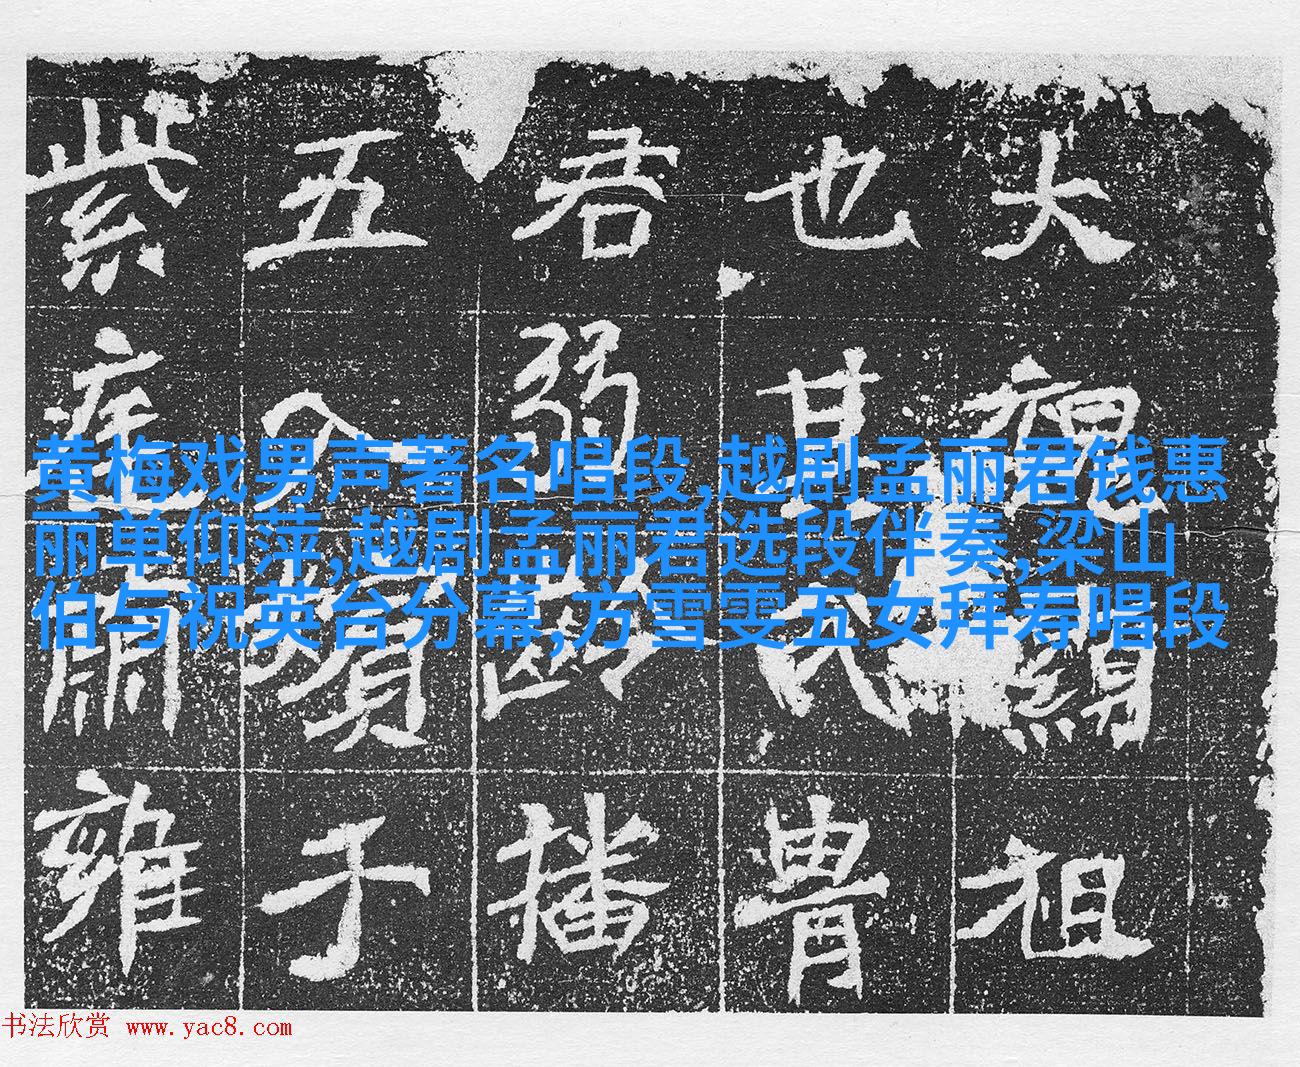 大 祖
也 胄
君弱齡播
五 于
紫 雍
黄梅戏男声著名唱段,越剧孟丽君钱惠
丽单仰萍,越剧孟丽君选段伴奏,梁山
伯与祝英台分幕,方雪雯五女拜寿唱段
书法欣赏 www.yac8.com